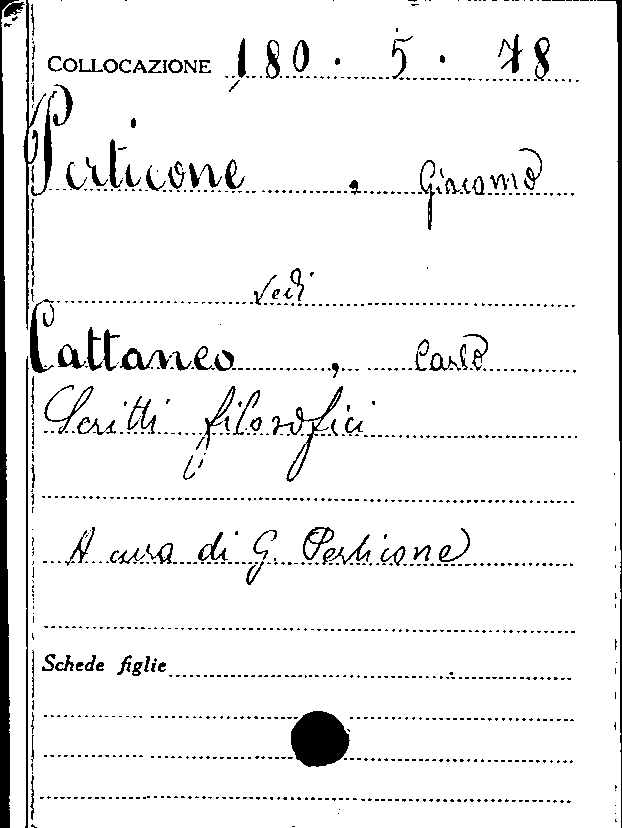 COLLOCAZIONE 180. 5. 78
Perticone, Giacomo
vedi
Cattaneo, Carlo
Scritti filosofici
A cura di G. Perticone
Schede figlie